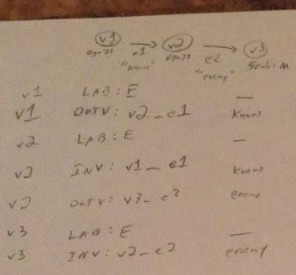 v1 v2 v3
e1 e2
"knows" "enemy"
v1 LAB: E —
v1 OUTV: v2_e1 knows
v2 LAB: E —
v2 INV: v1_e1 knows
v2 OUTV: v3_e2
v3 LAB: E —
v3 INV: v2_e2 enemy